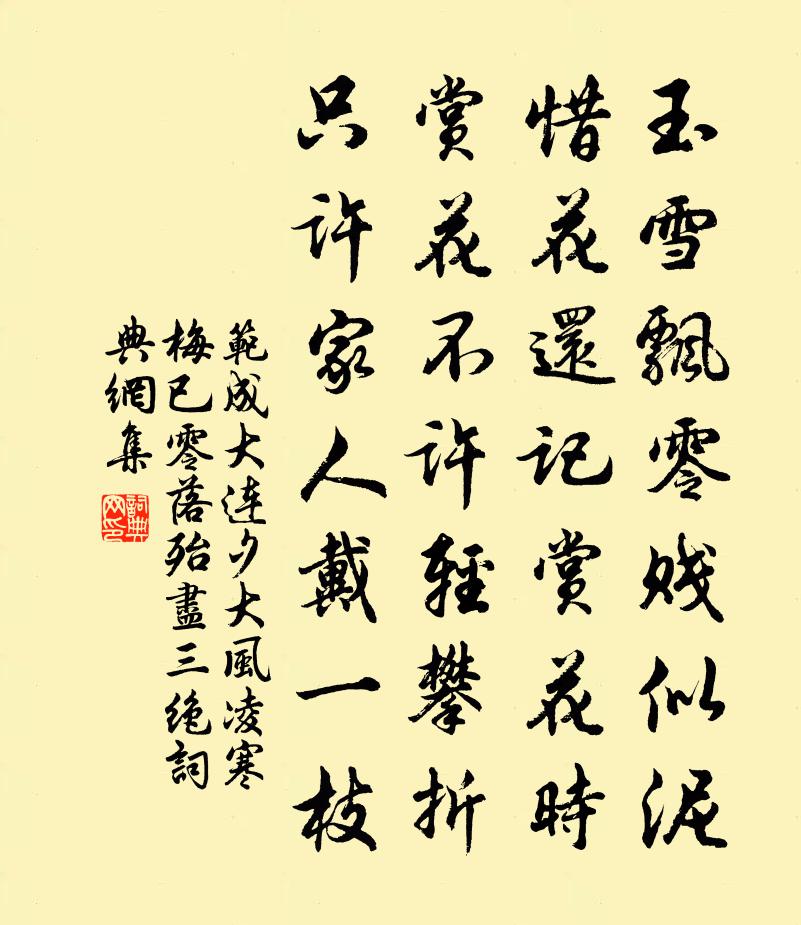 玉雪飄零賤似泥
惜花還記賞花時
賞花不許輕攀折
只許家人戴一枝
範成大連夕大風凌寒
梅已零落殆盡三絶詞
典網集
詞典
网印